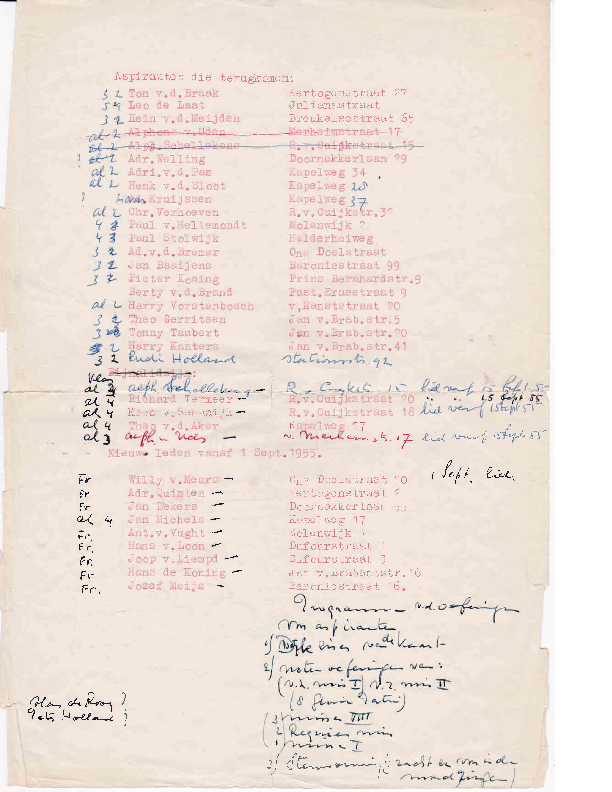 Aspiranten die terugkomen:
3 2 Ton v.d.Braak Hertogenstraat 27
54 Leo de Laat Julianastraat
3 2 Hein v.d.Meijden Broekelsestraat 65
al 2 Alphons v.Uden Merheimstraat 17
al 2 Alph.Schellekens R.v.Cuijkstraat 15
! al 2 Adr.Welling Doornakkerlaan 29
al 2 Adri.v.d.Pas Kapelweg 34
al 2 Henk v.d.Sloot Kapelweg 28
! Kruijssen Kapelweg 37
al 2 Chr.Verhoeven R.v.Cuijkstr.32
4 3 Paul v.Hellemondt Molenwijk 2
4 3 Paul Stolwijk Helderheiweg
3 2 Ad.v.d.Bremer Ons Doelstraat
3 2 Jan Basijens Baroniestraat 99
3 2 Pieter Koning Prins Bernhardstr.9
Berty v.d.Brand Past.Erasstraat 9
al 2 Harry Vorstenbosch v.Ranststraat 20
3 2 Theo Gerritsen Jan v.Brab.str.5
3 Tonny Taubert Jan v.Brab.str.20
2 Harry Kanters Jan v.Brab.str.41
3 2 Rudi Holland Stationsstr. 92
Klas
al 3 alph Schellekens — R. v Cuykstr. 15 lid vanaf 15 Sept. 55
al 4 Richard Termeer — R.v.Cuijkstraat 20 ü ü 15 Sept 55
al 4 Kees — R.v.Cuijkstraat 18 lid vanaf 15 Sept 55
al 4 Theo v.d.Aker Kapelweg 27
al 3 alph v Uden — v. Merheimstr. 17 lid vanaf 15 Sept 55
Nieuwe leden vanaf 1 Sept.1955. 1 Sept.
Fr Willy v.Meurs — Ons Doelstraat 20
Fr Adr.Quinten — Hertogenstraat
Fr Jan Bekers — Doornakkerlaan
al 4 Jan Michels — Kapelweg 17
Fr. Ant.v.Vught — Molenwijk
Fr. Hans v.Loon — Dufourstraat
Fr. Joop v.Liempd — Dufourstraat 3
Fr Hans de Koning — Jan v.Brabantstr.16
Fr. Jozef Meijs — Baroniestraat 16.
Programma v.d. oefeningen
v/d aspiranten
1) van de kaart
2) noten oefeningen van:
(v.z. mis I) v.z. mis II
(3) missa VIII
2) Requiem mis
1) missa I
3) zacht en van in de
mond zingen)
Holland ?